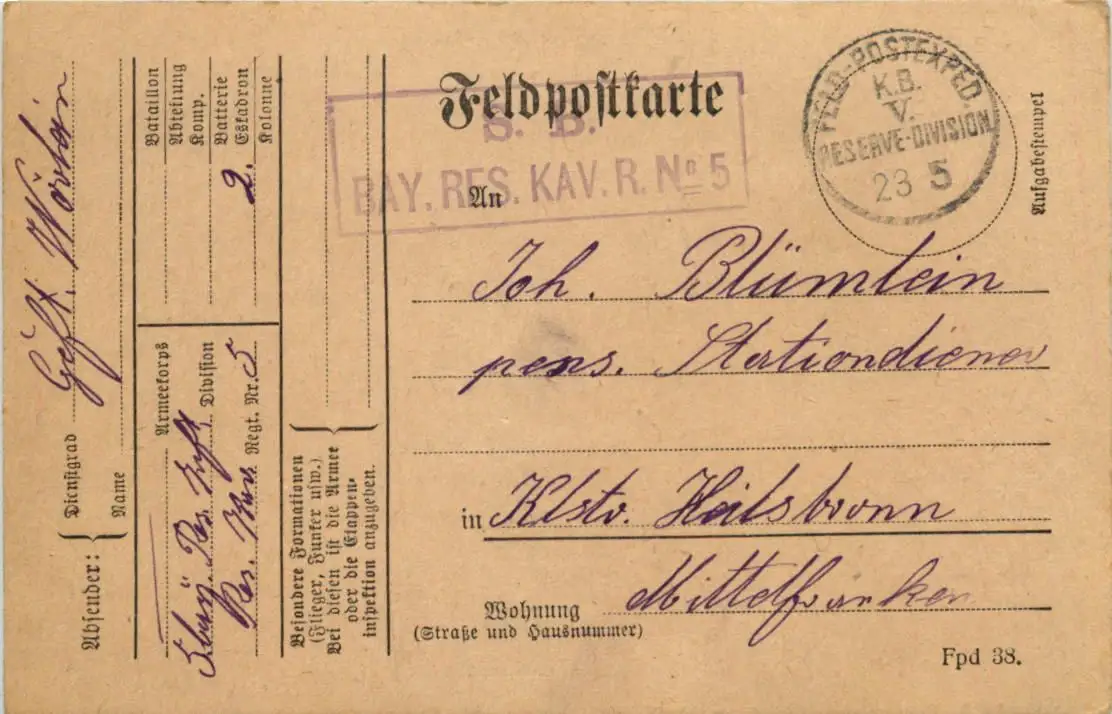 Feldpostkarte
S. B.
BAY. RES. KAV. R. No 5
FELD-POSTEXPED.
K.B.
V.
RESERVE-DIVISION
23 5
Aufgabestempel
An
Joh. Blümlein
pens. Stationdiener
in Klstr. Heilsbronn
Mittelfranken
Wohnung
(Straße und Hausnummer)
Fpd 38.
Absender:
Dienstgrad
Name
Gefr.
Bataillon
Abteilung
Komp.
Batterie
Eskadron 2.
Kolonne
Armeekorps
Division
Res. Kav. Regt. Nr. 5
Besondere Formationen
(Flieger, Funker usw.)
Bei diesen ist die Armee
oder die Etappen-
inspektion anzugeben.